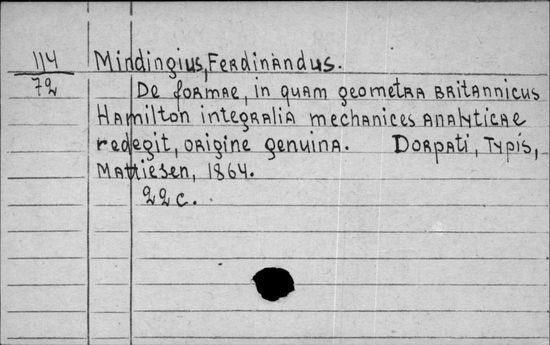 114 Mindingius, Ferdinandus.
72 De formae, in quam geometra Britannicus
Hamilton integralia mechanices analyticae
redegit, origine genuina. Dorpati, Typis,
Mattiesen, 1864.
22 c.